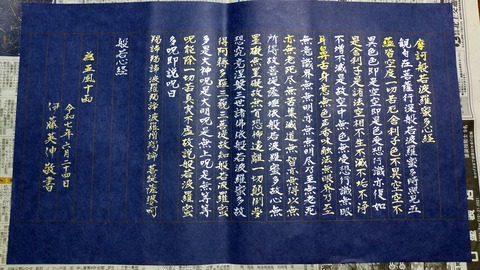 摩訶般若波羅蜜多心経
観自在菩薩行深般若波羅蜜多時照見五
蘊皆空度一切苦厄舎利子色不異空空不
異色色即是空空即是色受想行識亦復如
是舎利子是諸法空相不生不滅不垢不浄
不増不減是故空中無色無受想行識無眼
耳鼻舌身意無色声香味触法無眼界乃至
無意識界無無明亦無無明尽乃至無老死
亦無老死尽無苦集滅道無智亦無得以無
所得故菩提薩埵依般若波羅蜜多故心無
罣礙無罣礙故無有恐怖遠離一切顛倒夢
想究竟涅槃三世諸仏依般若波羅蜜多故
得阿耨多羅三藐三菩提故知般若波羅蜜
多是大神呪是大明呪是無上呪是無等等
呪能除一切苦真実不虚故説般若波羅蜜
多呪即説呪曰
羯諦羯諦波羅羯諦波羅僧羯諦菩提薩婆訶
般若心経
為五風十雨
令和七年六月二十四日
伊藤英伸敬書